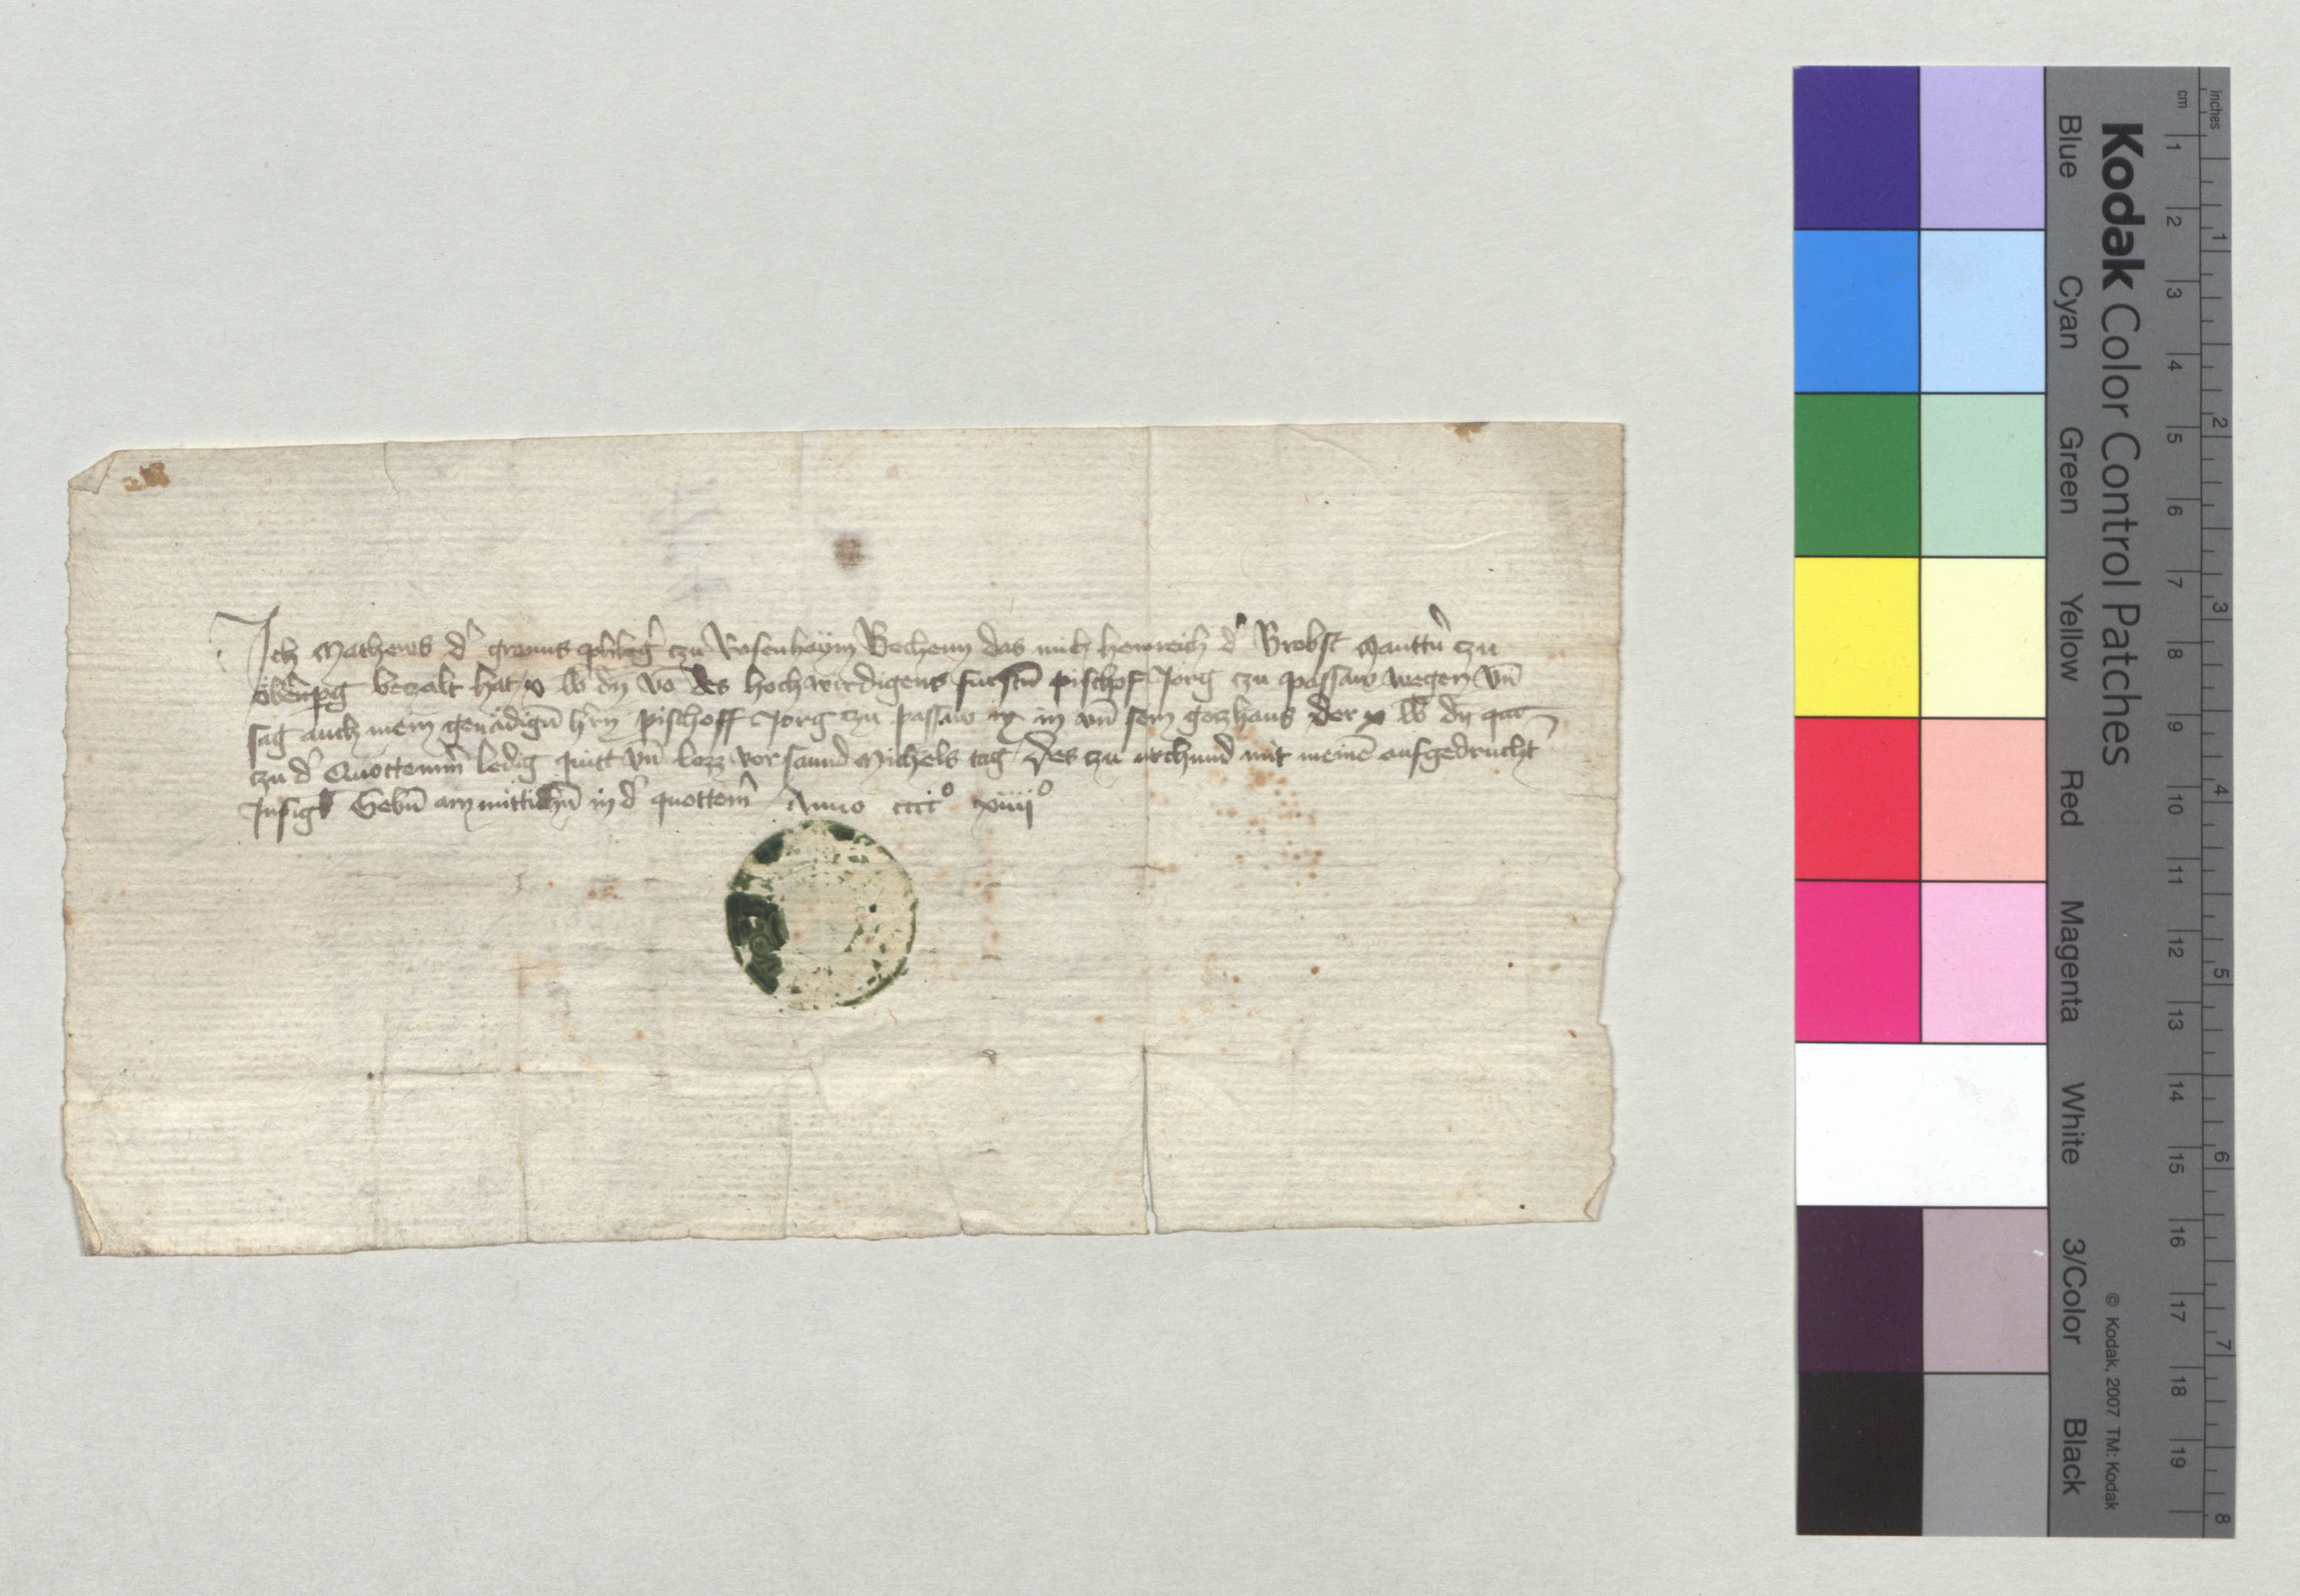 Ich Matheus d' granns phleg' czu Rosenhaÿm Bechenn das mich heinreich d' Brobst Mauttn' czu
öbernpg beczalt hat x lb dn vo des hochwirdigens fürstn pischof Jorg czu passaw wegen vn
sag auch mein genädign h'rn pischoff Jorg zu passaw in vn sein goczhaus der x lb dn
czu d' Quottemm' ledig quitt vn lozz vor sannd Michels tag des zu urchund mit meine aufgedrucht
Insigl Gebn am mittichn in d' quottem' Anno cccc° xiiii°
Kodak Color Control Patches
Blue Cyan Green Yellow Red Magenta White 3/Color Black
© Kodak, 2007 TM: Kodak
cm 1 2 3 4 5 6 7 8 9 10 11 12 13 14 15 16 17 18 19
inches 1 2 3 4 5 6 7 8